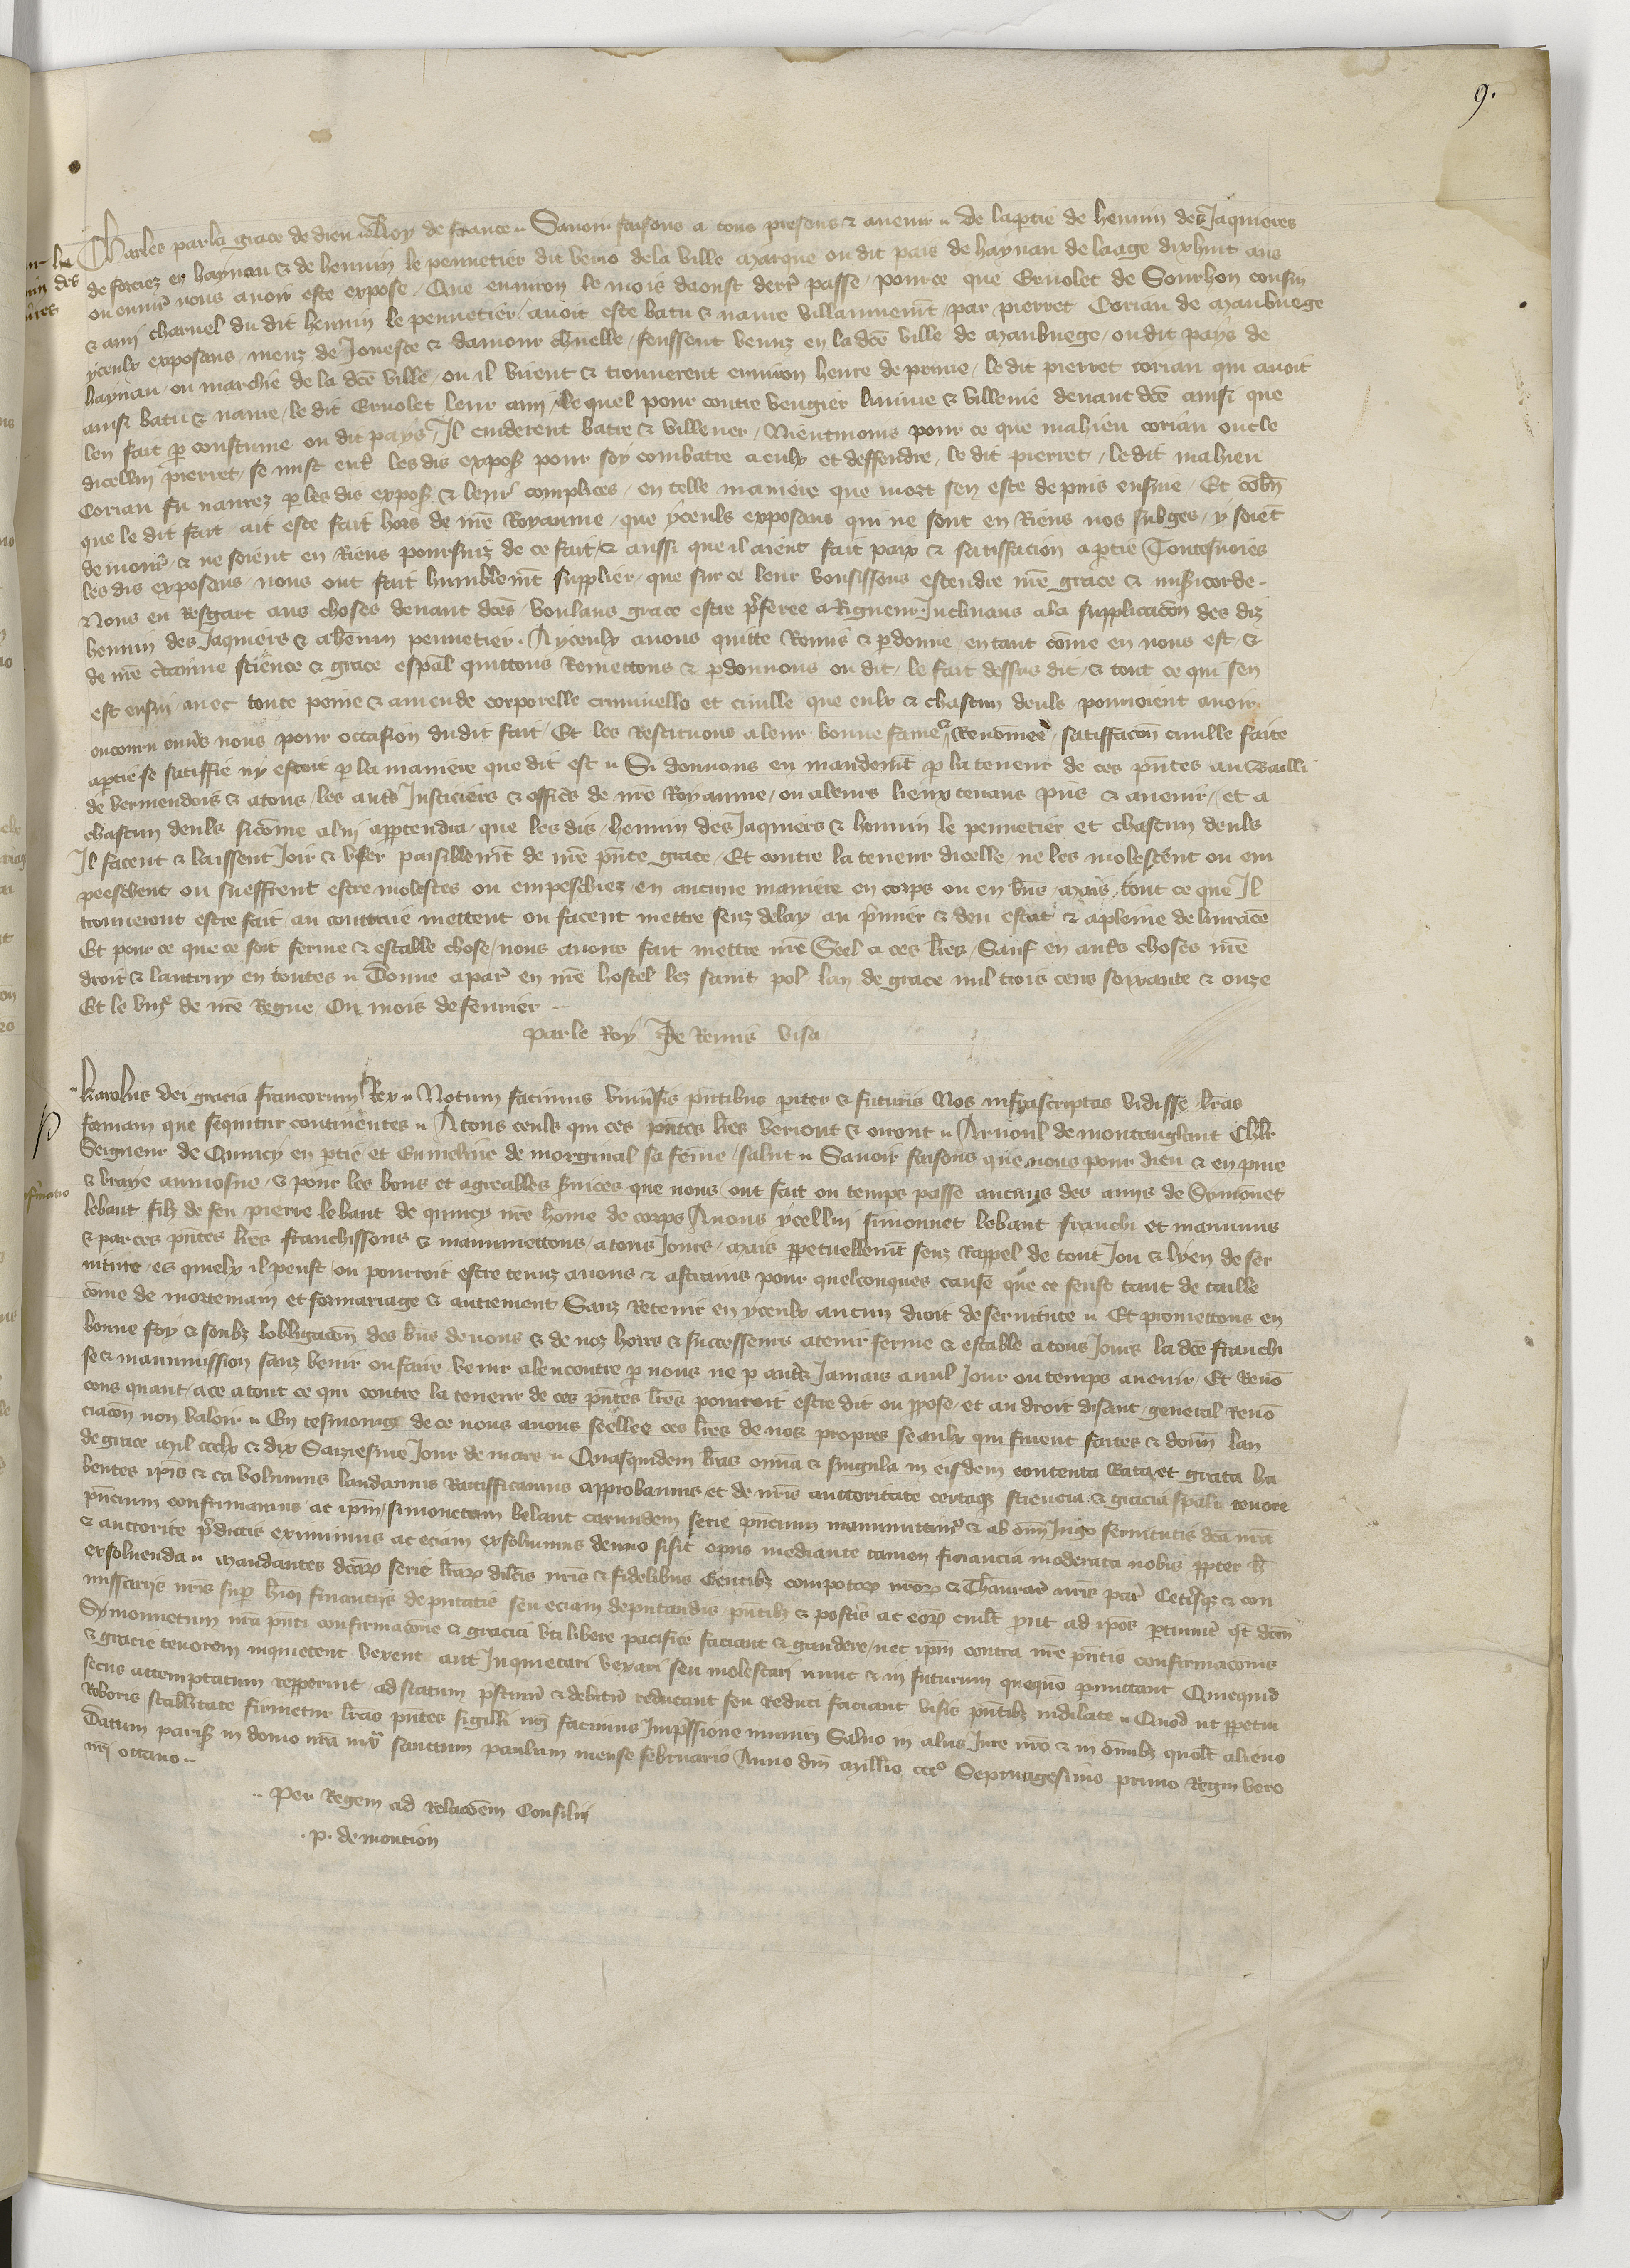 9.
Charles par la grace de dieu Roy de France Savoir faisons a tous presens & avenir de la ptie de hennin des Jaquieres
de foriez en haynau & de hennin le pennetier dit beuo de la ville marque ou dit pais de haynau de laage dixhuit ans
ou envir nous avoir este expose Que environ le mois daoust derr passe pour ce que Ernolet de Sourhon cousin
& ami charnel du dit hennin le pennetier avoit este batu & navre villainnemt par pierret Corian de maubuege
yceulx exposans menz de Jonesce & damour chnelle feussent venuz en la dce ville de maubuege ou dit pays de
haynau ou marchie de la dce ville ou il virent & trouverent environ heure de prime le dit pierret corian qui avoit
ainsi batu & navre le dit Ernolet leur ami le quel pour contrevengier linjure & villenie devant dce ainsi que
len fait p coustume ou dit pays Il cuiderent batre & villener Nientmoins pour ce que mahieu corian oncle
dicellui pierret se mist entr les dis expos pour soy combatre a eulx et deffendre le dit pierret le dit mahieu
Corian fu navrez p les dis expos & leurs complices en telle maniere que mort sen este depuis ensuie Et combn
que le dit fait ait este fait hors de nre Royaume que yceuls exposans qui ne sont en Riens nos subges y soient
demour & ne soient en Riens poursuiz de ce fait & aussi que il aient fait paix & satiffacion a ptie Toutesvoies
les dis exposans nous ont fait humblemt supplier que sur ce leur vousissons estendre nre grace & misicorde
Nous en Resgart aus choses devant dces voulans grace estre pferee a Rigueur Inclinans a la supplicacon des diz
hennin des Jaquiers & a hennin pennetier A yceulx avons quitte Remis & pdonne en tant come en nous est &
de nre ctainne science & grace espal quittons Remettons & pdonnons ou dit le fait dessus dit & tout ce qui sen
est ensui avec toute peine & amende corporelle criminelle et civille que eulx & chascun deuls pourroient avoir
encouru envs nous pour occasion du dit fait Et les Restituons a leur bonne fame Renomee satiffacon civille faite
a ptie se satiffie ny estoit p la maniere que dit est Si donnons en mandemt p la teneur de ces pntes au Bailli
de vermendois & a tous les autrs Justiciers & officrs de nre Royaume ou a leurs lieux tenans pns & avenir et a
chascun deuls sicome a lui appartendra que les dis hennin des Jaquiers & hennin le pennetier et chascun deuls
Il facent & laissent Joir & user paisiblemt de nre pnte grace Et contre la teneur dicelle ne les molestent ou em
peeschent ou sueffrent estre molestes ou empeschiez en aucune maniere en corps ou en bns mais tout ce que Il
trouveront estre fait au contraire mettent ou facent mettre senz delay au pmier & deu estat & a pleine delivrace
Et pour ce que ce soit ferme & estable chose nous avons fait mettre nre Seel a ces lres Sauf en autrs choses nre
droit & lautruy en toutes Donne a par en nre hostel lez saint pol lan de grace mil trois cens soixante & onze
Et le viije de nre Regne Ou mois de fevrier
par le Roy J de Remis visa
Karolus dei gracia francorum Rex Notum facimus univsis pntibus pariter & futuris Nos infrascriptas vidisse lras
formam que sequitur continentes A tous ceuls qui ces pntes lres verront & orront Arnoul de montauglant Chlr
Seigneur de Quincy en ptie et de morginal sa feme salut Savoir faisons que nous pour dieu & en pure
& vraye aumosne & pour les bons et agreables svices que nous ont fait ou temps passe aucuns des amis de Symonet
lebant filz de feu pierre lebant de quincy nre home de corps Avons ycellui simonnet lebant franchi et manumis
& par ces pntes lres franchissons & manumettons a tous Jours mais ppetuellemt senz Rappel de tout Jou & lyen de ser
vitute es quielx il peust ou pourroit estre tenuz a nous & astrains pour quelconques cause que ce feust tant de taille
come de mortemain et formariage & autrement Sanz Retenir en yceulx aucun droit de servitute Et promettons en
bonne foy & soubz lobligacon des bns de nous & de noz hoirs & successeurs a tenir ferme & estable a tous Jours la dce franchi
se & manumission sanz venir ou faire venir alencontre p nous ne p autrs Jamais a nul Jour ou temps avenir Et Reno
cons quant a ce a tout ce qui contre la teneur de ces pntes lres pourroit estre dit ou ppose et au droit disant general Reno
ciacon non valoir En tesmoing de ce nous avons seelle ces lres de noz propres seaulx qui furent faites & donn lan
de grace mil ccclx & dix Saziesme Jour de mars Quasquidem lras omnia & singula in eisdem contenta Rata et grata ha
bentes ipas & ea volumus laudamus Ratifficamus approbamus et de nris auctoritate certaque sciencia & gracia spali tenore
pncium confirmamus ac ipm simonetum belant earundem serie pncium manumittimus & ab omi Jugo servitutis dca nra
& auctorite pdictis eximimus ac eciam exsolvimus denuo si sit opus mediante tamen financia moderata nobis ppter h
exsolvenda Mandantes dcarum serie lrarum dilcis nris & fidelibus Gentibz compotorum nrorum & Thesaurar nris par Cetisque & com
missariis nris sup hmoi financiis deputatis seu eciam deputandis pntibz & postis ac eorum cuilt prout ad ipos ptinuit qt dcm
Symonnetum nra pnti confirmacone & gracia uti libere pacifice faciant & gaudere nec ipm contra nre pntis confirmaconis
& gracie tenorem inquietent vexent aut Inquietari vexari seu molestari nunc & in futurum quequo pmittant Quicquid
secus attemptatum reppererint ad statum pstinu & debitu reducant seu Reduci faciant visis pntibz indilate Quod ut ppetui
Roboris stabilitate firmetur lras pntes sigilli nri facimus Impssione muniri Salvo in aliis Jure nro & in omnibz quolt alieno
Datum paris in domo nra iuxta sanctum paulum mense februario Anno dni millio ccco Septuagesimo primo Regni vero
nri octavo
Per Regem ad Relacoem Consilii
p. de montion